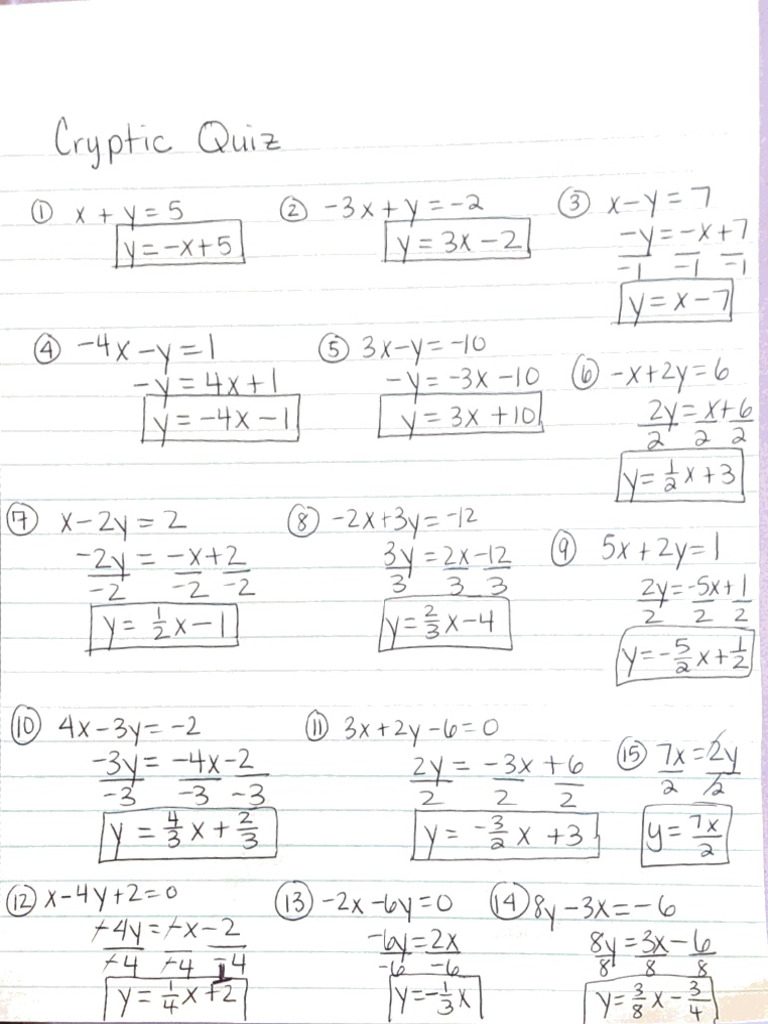 Cryptic Quiz
① x + y = 5
y = -x + 5
② -3x + y = -2
y = 3x - 2
③ x - y = 7
-y = -x + 7
-1 -1 -1
y = x - 7
④ -4x - y = 1
-y = 4x + 1
y = -4x - 1
⑤ 3x - y = -10
-y = -3x - 10
y = 3x + 10
⑥ -x + 2y = 6
2y = x + 6
2 2 2
y = 1/2 x + 3
⑰ x - 2y = 2
-2y = -x + 2
-2 -2 -2
y = 1/2 x - 1
⑧ -2x + 3y = -12
3y = 2x - 12
3 3 3
y = 2/3 x - 4
⑨ 5x + 2y = 1
2y = -5x + 1
2 2 2
y = -5/2 x + 1/2
⑩ 4x - 3y = -2
-3y = -4x - 2
-3 -3 -3
y = 4/3 x + 2/3
⑪ 3x + 2y - 6 = 0
2y = -3x + 6
2 2 2
y = -3/2 x + 3
⑮ 7x = 2y
2 2
y = 7x/2
⑫ x - 4y + 2 = 0
-4y = -x - 2
-4 -4 -4
⑬ -2x - 6y = 0
-6y = 2x
-6 -6
y = -1/3 x
⑭ 8y - 3x = -6
8y = 3x - 6
8 8 8
y = 3/8 x - 3/4